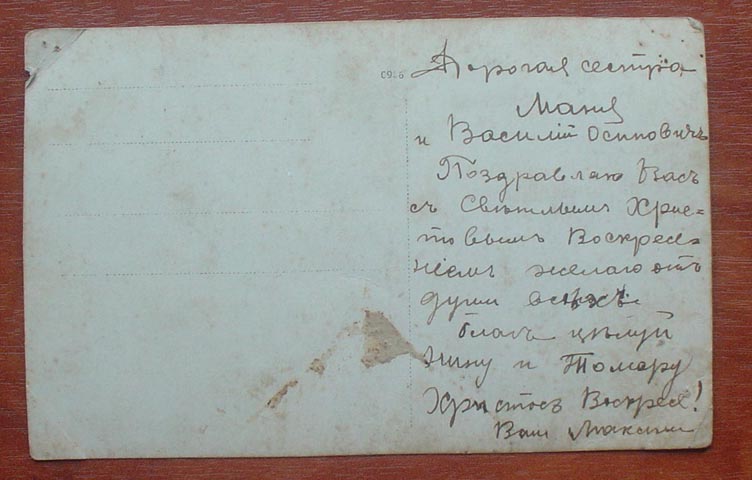 6969
Дорогая сестра
Маня
и Василій Осиповичъ
Поздравляю Васъ
съ Свѣтлымъ Хрис=
товымъ Воскресе=
ніемъ желаю отъ
души всѣхъ
благъ цѣлуй
Нину и Томару
Христосъ Воскресе!
Ваш Максим